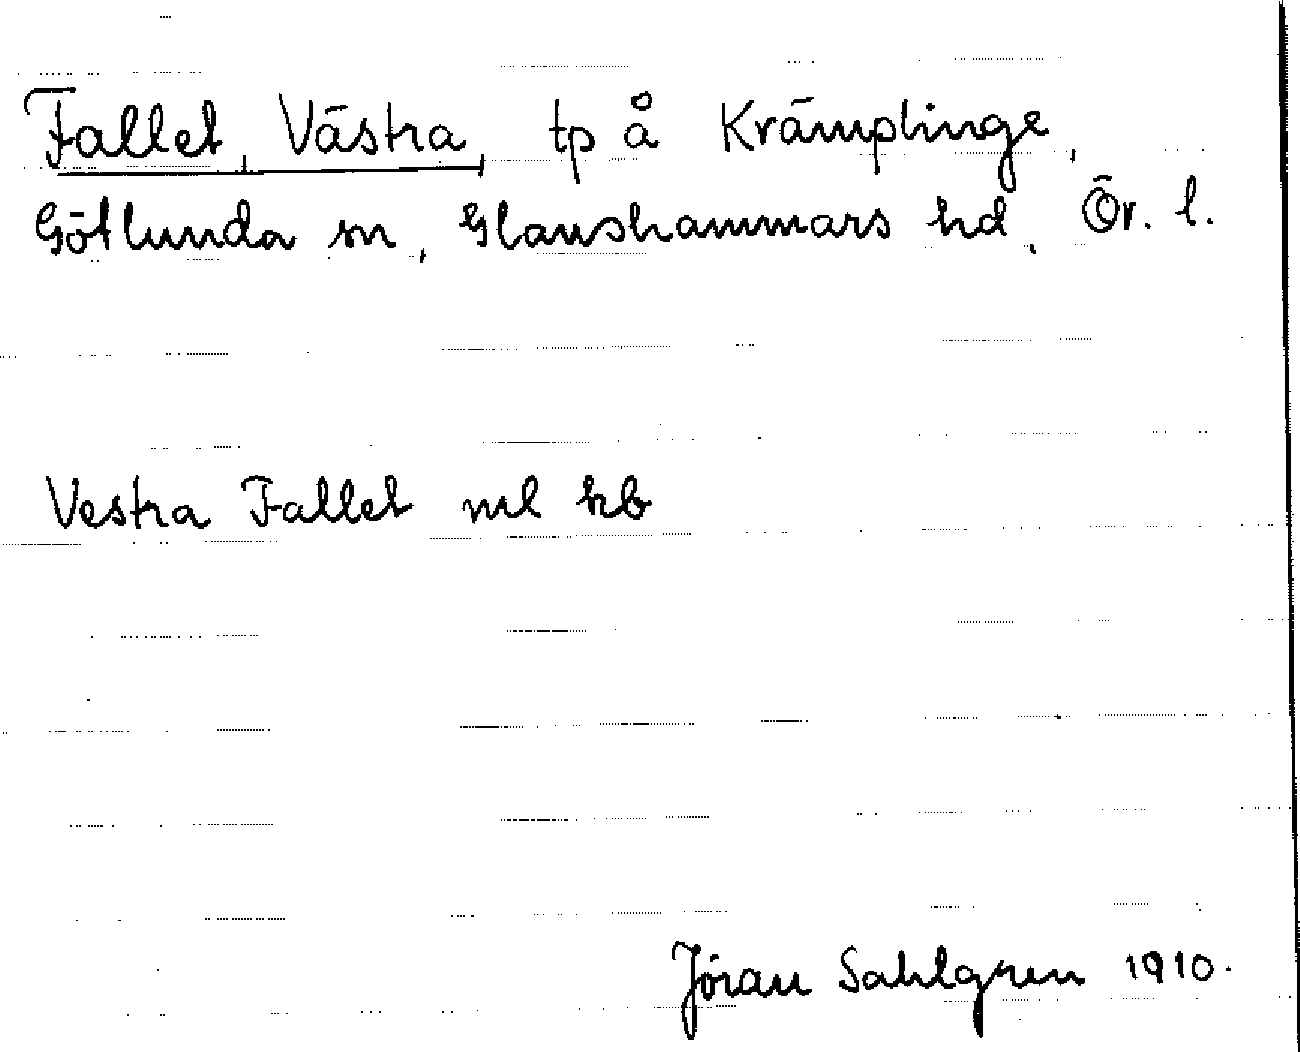 Fallet, Västra, tp å Krämplinge,
Götlunda sn, Glanshammars hd, Ör. l.
Vestra Fallet ml kb
Jöran Sahlgren 1910.